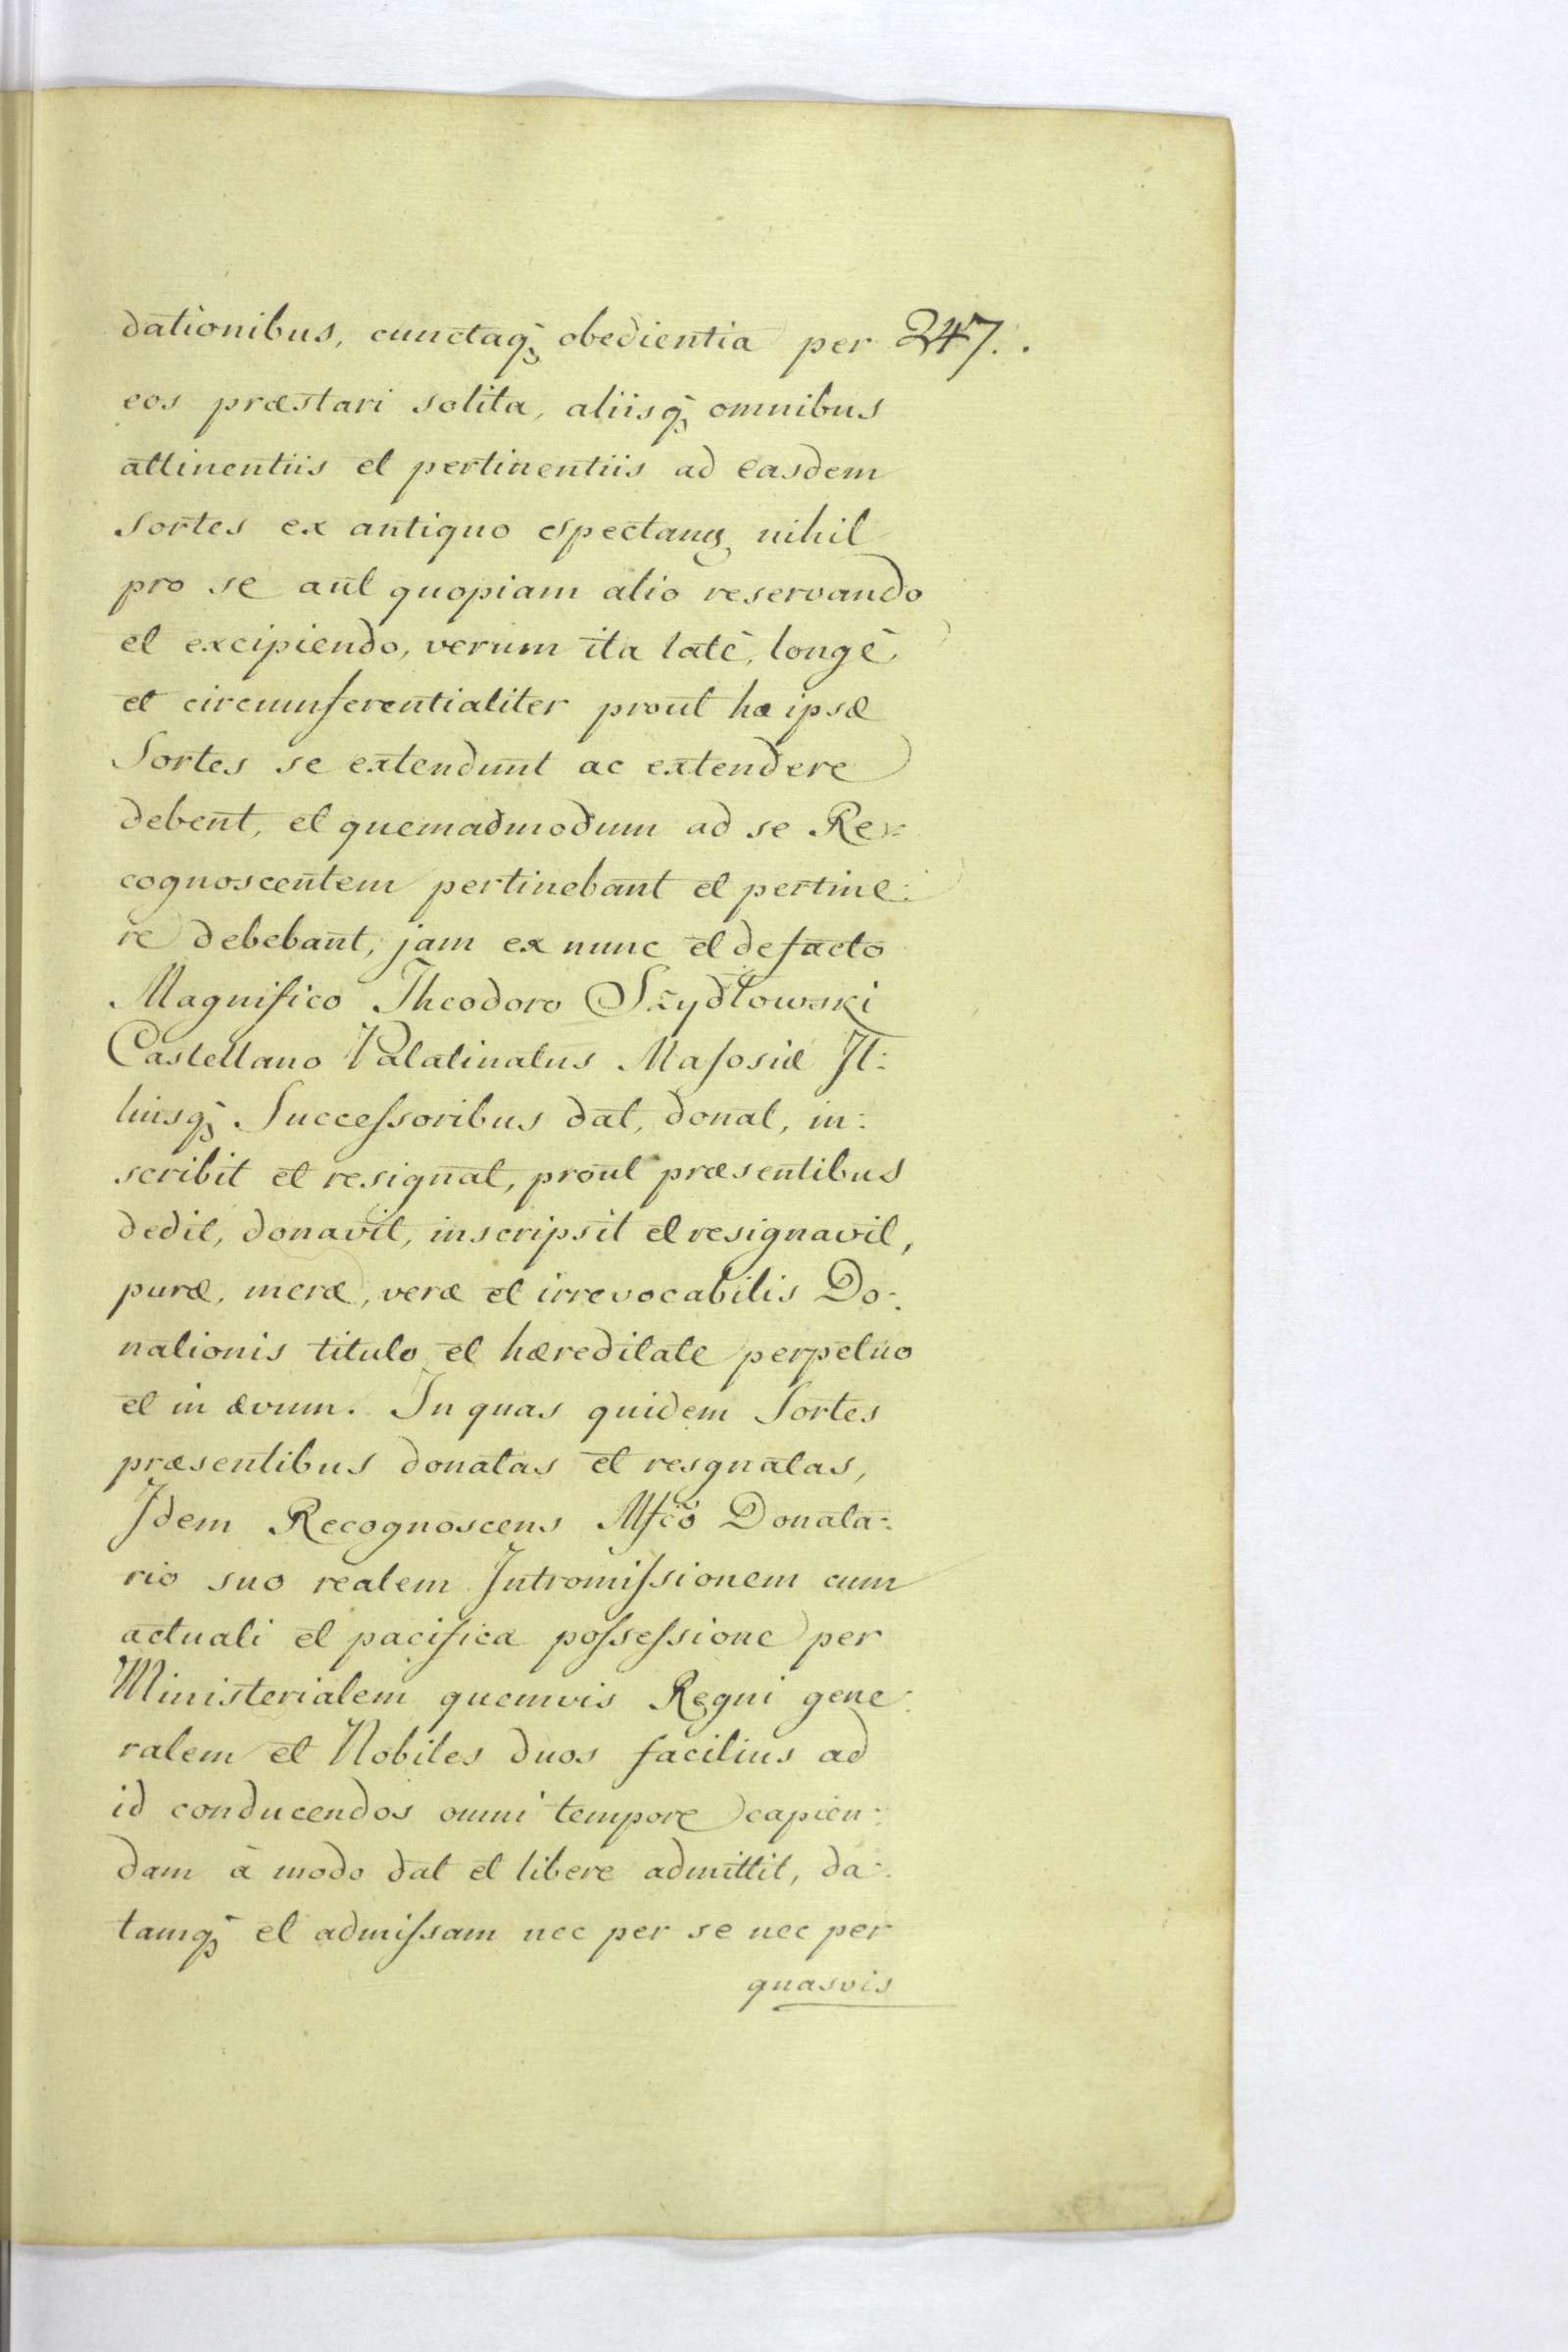 dationibus, cunctaq; obedientia per 247.
eos præstari solita, aliisq; omnibus
attinentiis et pertinentiis ad easdem
Sortes ex antiquo nihil
pro se aut quopiam alio reservando
et excipiendo, verum ita latè, longè,
et circumferentialiter prout hæ ipsæ
Sortes se extendunt ac extendere
debent, et quemadmodum ad se Re=
cognoscentem pertinebant et pertine:
re debebant, jam ex nunc et defacto
Magnifico Theodoro Szydłowski
Castellano Palatinatus Masosiæ Il:
liusq; Successoribus dat, donat, in:
scribit et resignat, prout præsentibus
dedit, donavit, inscripsit et resignavit,
puræ, meræ, veræ et irrevocabilis Do:
nationis titulo et hæreditate perpetuo
et in ævum. In quas quidem Sortes
præsentibus donatas et resgnatas,
Idem Recognoscens Mfco Donata:
rio suo realem Intromissionem cum
actuali et pacifica possessione per
Ministerialem quemvis Regni gene:
ralem et Nobiles duos facilius ad
id conducendos omni tempore capien:
dam à modo dat et libere admittit, da:
tamq; et admissam nec per se nec per
quasvis